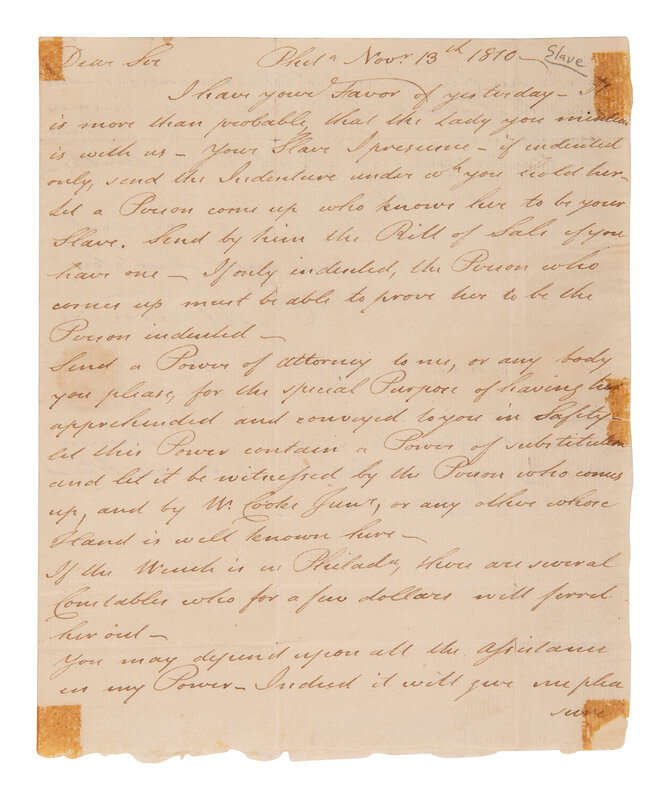 Dear Sir Philª Novr 13th 1810 — Slave
I have your Favor of yesterday — It
is more than probable that the Lady you mention
is with us — Your Slave I presume — if indented
only, send the Indenture under wh you hold her —
Let a Person come up who knows her to be your
Slave. Send by him the Bill of Sale if you
have one — If only indented, the Person who
comes up must be able to prove her to be the
Person indented —
Send a Power of attorney to me, or any body
you please, for the special Purpose of having her
apprehended and conveyed to you in Safity —
let this Power contain a Power of substitution
and let it be witnessed by the Person who comes
up, and by Wm Cooke Junr, or any other whose
Hand is well known here —
If the Wench is in Philada, there are several
Constables who for a few dollars will ferret
her out —
You may depend upon all the assistance
in my Power — Indeed it will give me plea
sure